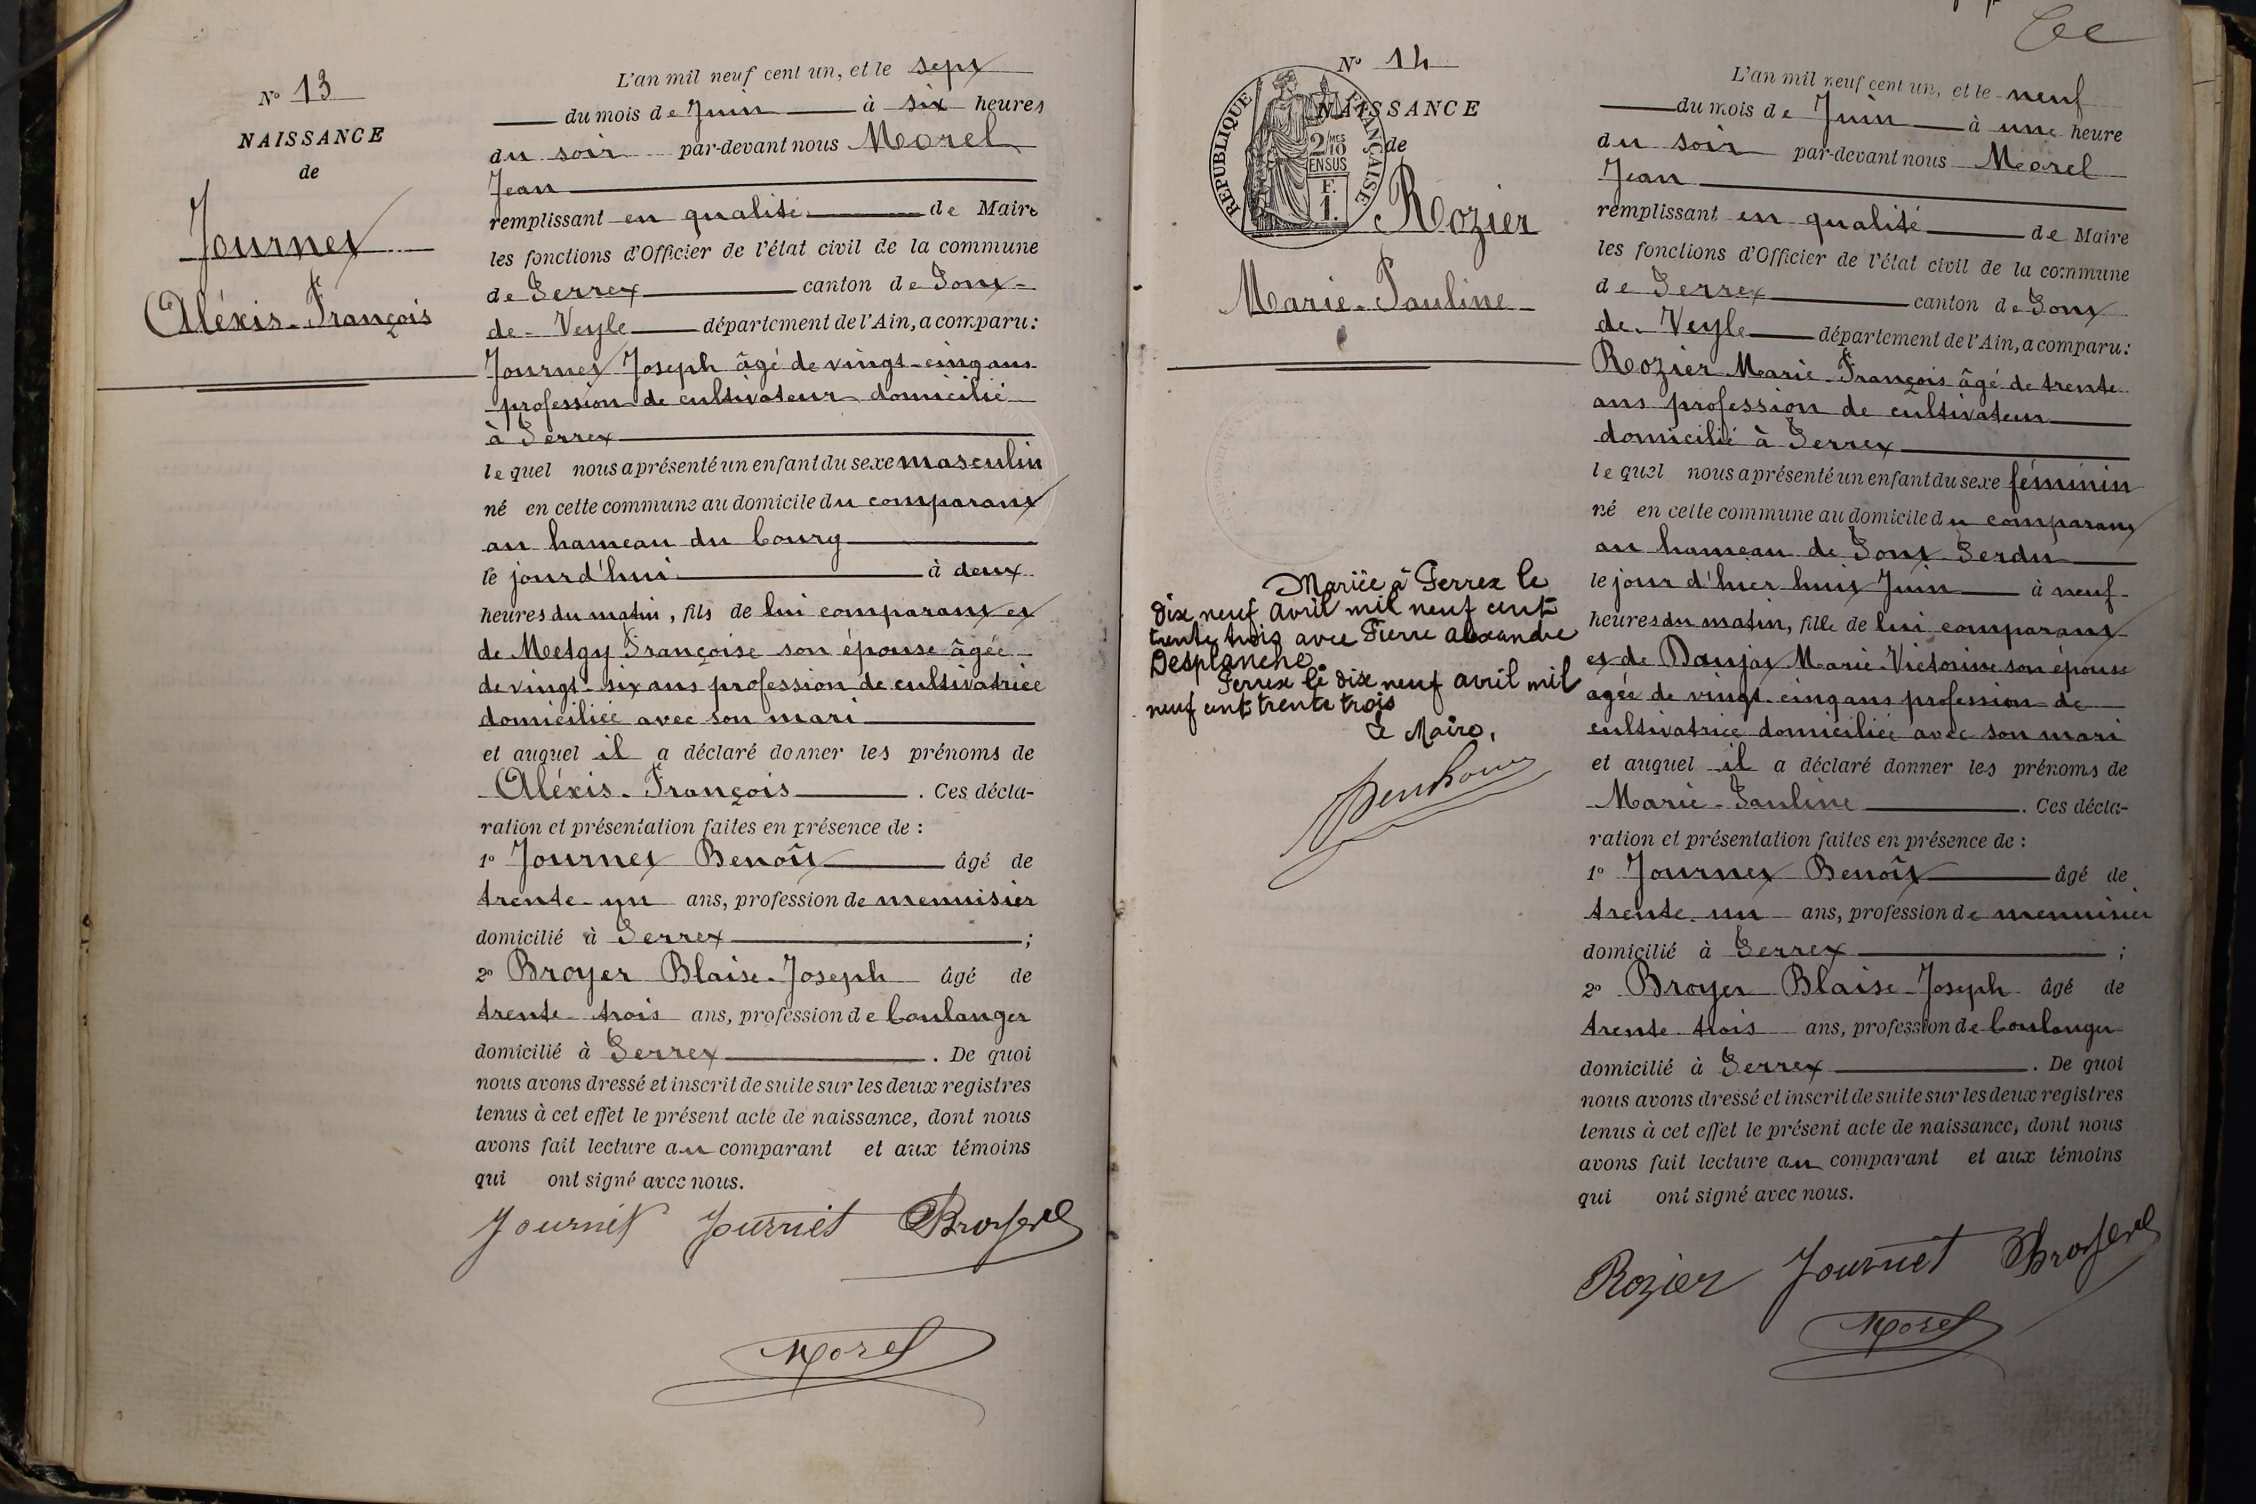 N° 13
NAISSANCE
de
Journet
Aléxis-François
L'an mil neuf cent un, et le sept
du mois de Juin à six heures
du soir par-devant nous Morel
Jean
remplissant en qualité de Maire
les fonctions d'Officier de l'état civil de la commune
de Perrex canton de Pont-
de-Veyle département de l'Ain, a comparu:
Journet Joseph âgé de vingt-cinq ans
profession de cultivateur domicilié
à Perrex
lequel nous a présenté un enfant du sexe masculin
né en cette commune au domicile du comparant
au hameau du bourg
le jourd'hui à deux
heures du matin, fils de lui comparant et
de Metgy Françoise son épouse âgée
de vingt-six ans profession de cultivatrice
domiciliée avec son mari
et auquel il a déclaré donner les prénoms de
Aléxis-François. Ces décla-
ration et présentation faites en présence de :
1° Journet Benoît âgé de
trente-un ans, profession de menuisier
domicilié à Perrex ;
2° Broyer Blaise-Joseph âgé de
trente-trois ans, profession de boulanger
domicilié à Perrex. De quoi
nous avons dressé et inscrit de suite sur les deux registres
tenus à cet effet le présent acte de naissance, dont nous
avons fait lecture au comparant et aux témoins
qui ont signé avec nous.
Journet Journet Broyer
Morel
N° 14
NAISSANCE
de
RÉPUBLIQUE FRANÇAISE
2/10 MES
EN SUS
F.
1.
Rozier
Marie-Pauline
Mariée à Perrex le
dix neuf avril mil neuf cent
trente trois avec Pierre Alexandre
Desplanche.
Perrex le dix neuf avril mil
neuf cent trente trois
Le Maire,
L'an mil neuf cent un, et le neuf
du mois de Juin à une heure
du soir par-devant nous Morel
Jean
remplissant en qualité de Maire
les fonctions d'Officier de l'état civil de la commune
de Perrex canton de Pont
de-Veyle département de l'Ain, a comparu:
Rozier Marie-François âgé de trente
ans profession de cultivateur
domicilié à Perrex
lequel nous a présenté un enfant du sexe féminin
né en cette commune au domicile du comparant
au hameau de Pont-Perdu
le jour d'hier huit Juin à neuf
heures du matin, fille de lui comparant
et de Daujat Marie-Victorine son épouse
agée de vingt-cinq ans profession de
cultivatrice domiciliée avec son mari
et auquel il a déclaré donner les prénoms de
Marie-Pauline. Ces décla-
ration et présentation faites en présence de :
1° Journet Benoît âgé de
trente-un ans, profession de menuisier
domicilié à Perrex ;
2° Broyer Blaise-Joseph âgé de
trente-trois ans, profession de boulanger
domicilié à Perrex. De quoi
nous avons dressé et inscrit de suite sur les deux registres
tenus à cet effet le présent acte de naissance, dont nous
avons fait lecture au comparant et aux témoins
qui ont signé avec nous.
Rozier Journet Broyer
Morel